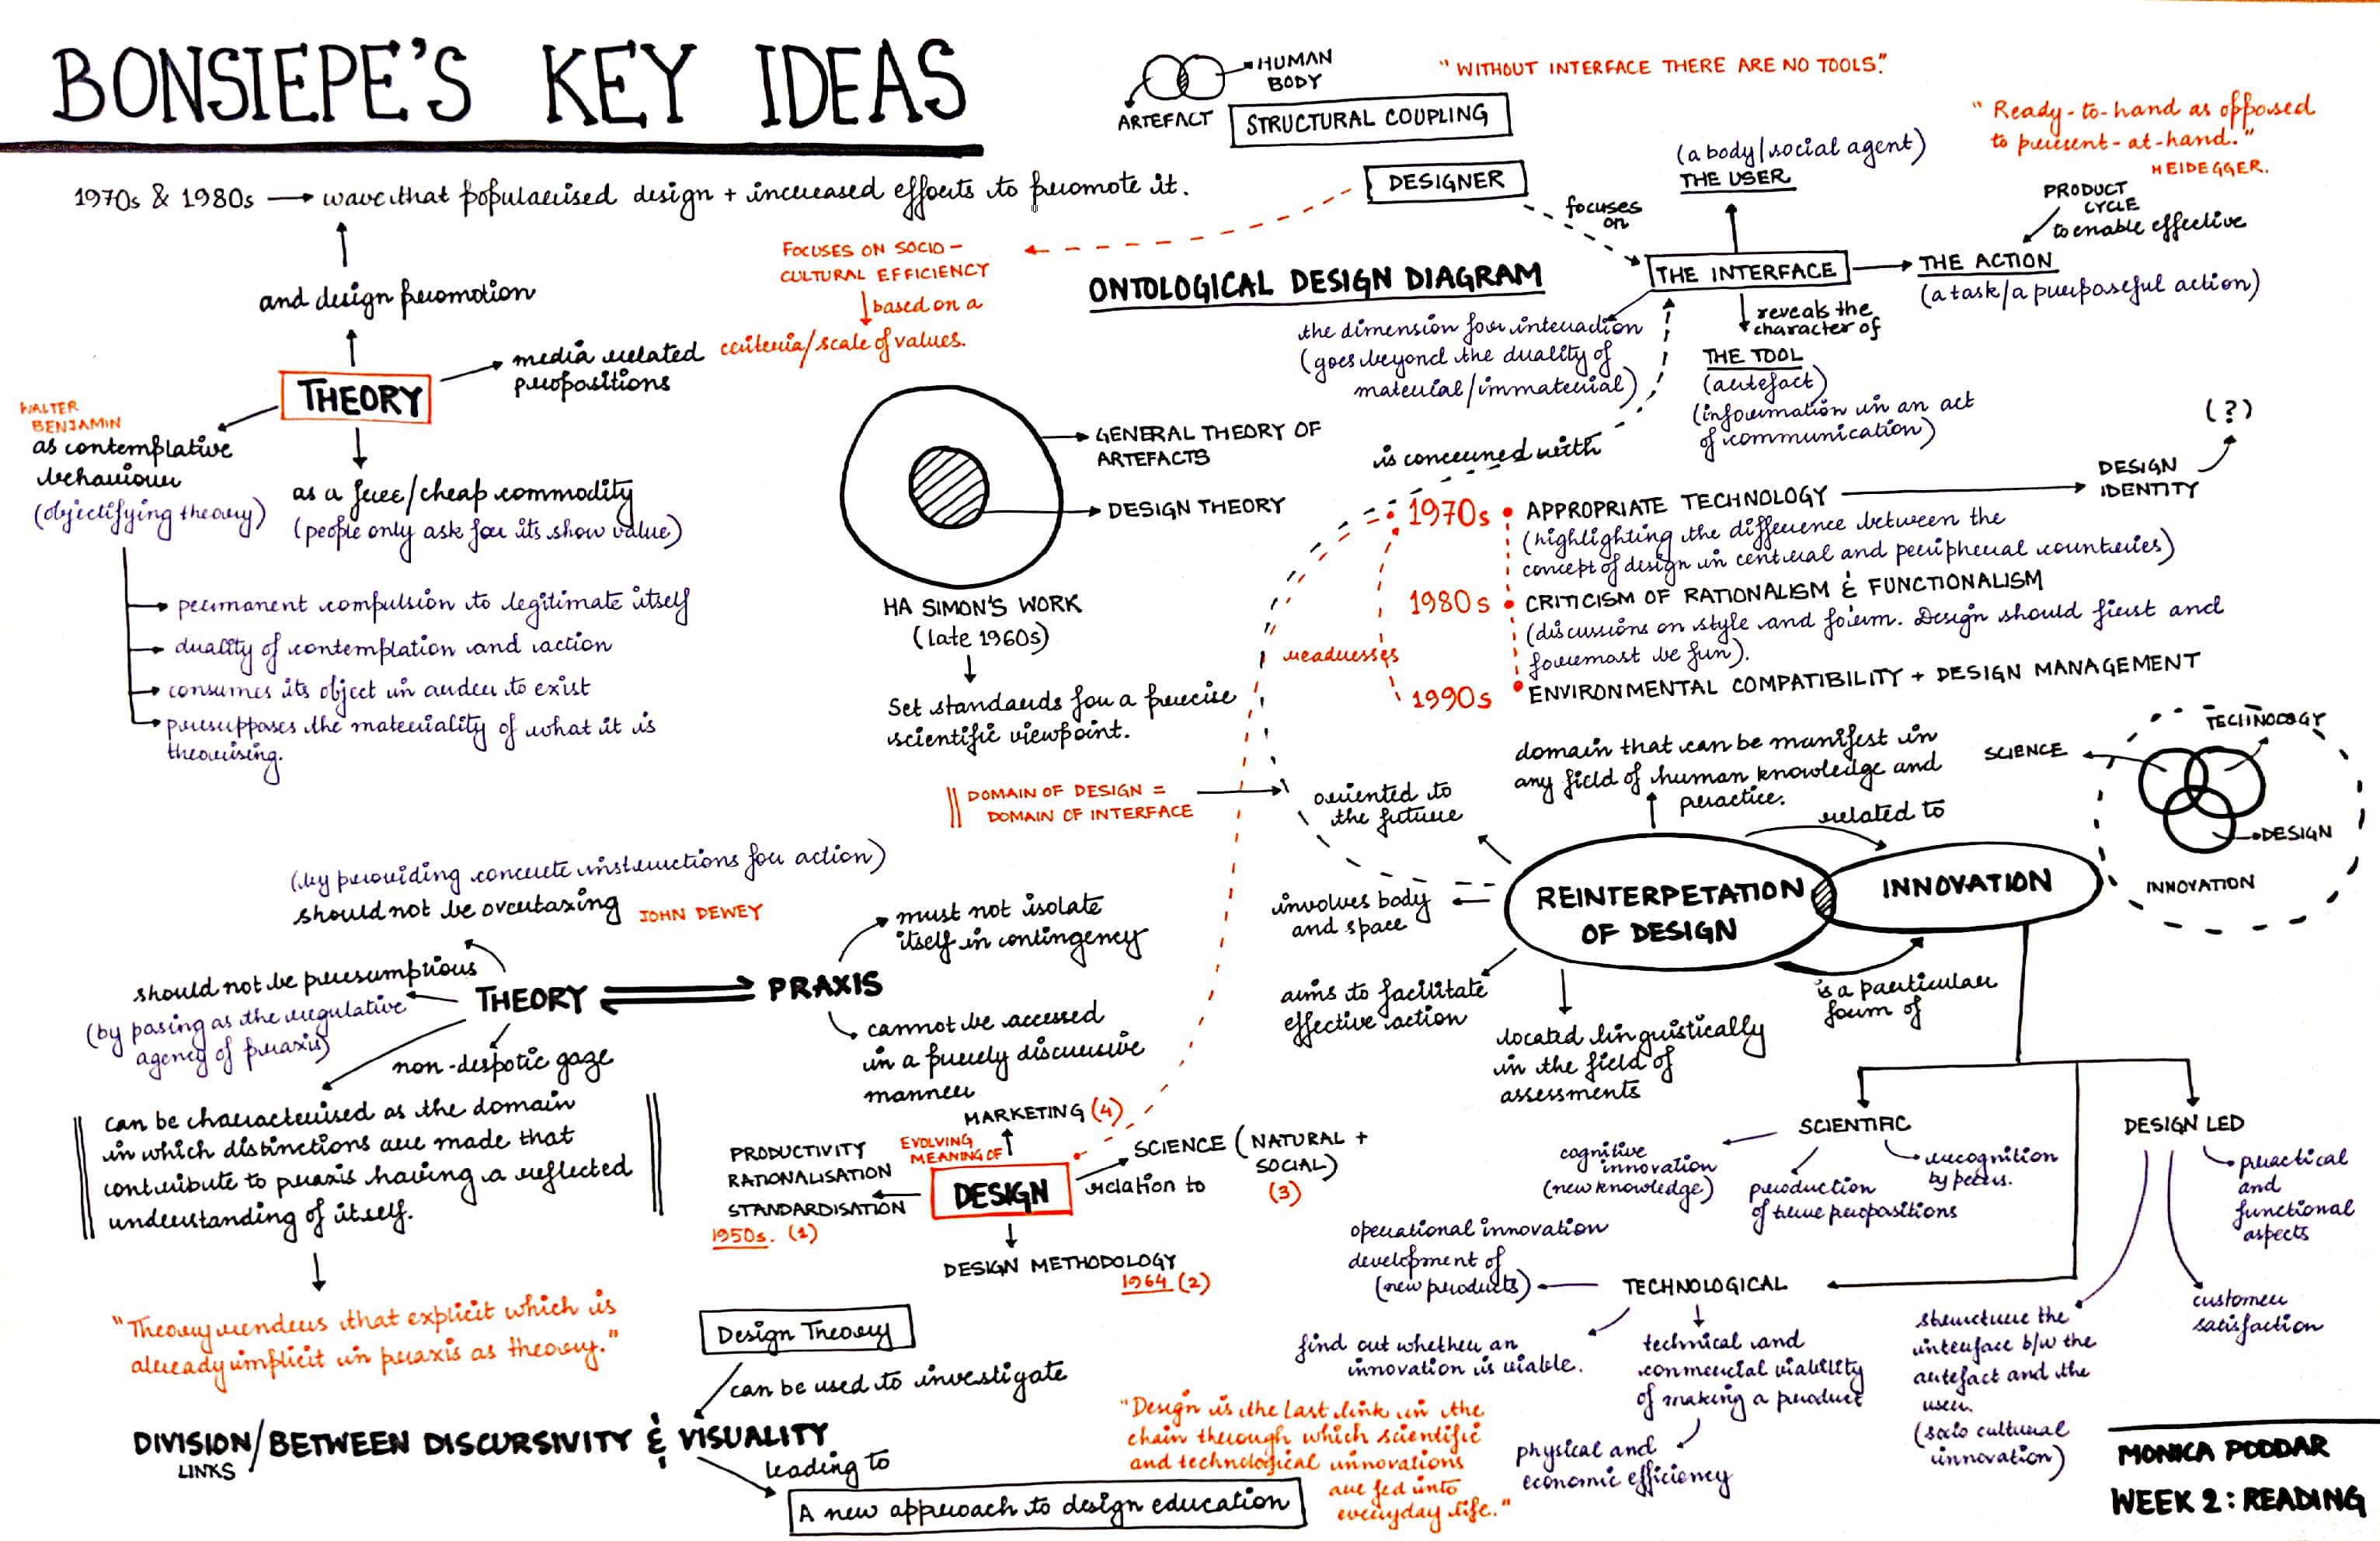 BONSIEPE'S KEY IDEAS
HUMAN
BODY
ARTEFACT
STRUCTURAL COUPLING
"WITHOUT INTERFACE THERE ARE NO TOOLS."
"Ready-to-hand as opposed
to present-at-hand."
HEIDEGGER.
1970s & 1980s → wave that popularised design + increased efforts to promote it.
and design promotion
THEORY
media related
propositions
WALTER
BENJAMIN
as contemplative
behaviour
(objectifying theory)
as a free/cheap commodity
(people only ask for its show value)
permanent compulsion to legitimate itself
duality of contemplation and action
consumes its object in order to exist
presupposes the materiality of what it is
theorising.
DESIGNER
FOCUSES ON SOCIO-
CULTURAL EFFICIENCY
based on a
criteria/scale of values.
focuses
on
ONTOLOGICAL DESIGN DIAGRAM
(a body/social agent)
THE USER
THE INTERFACE
PRODUCT
CYCLE
to enable effective
THE ACTION
(a task/a purposeful action)
the dimension for interaction
(goes beyond the duality of
material/immaterial)
reveals the
character of
THE TOOL
(artefact)
(information in an act
of communication)
GENERAL THEORY OF
ARTEFACTS
DESIGN THEORY
HA SIMON'S WORK
(late 1960s)
Set standards for a precise
scientific viewpoint.
is concerned with
1970s • APPROPRIATE TECHNOLOGY
DESIGN
IDENTITY
(?)
(highlighting the difference between the
concept of design in central and peripheral countries)
1980s • CRITICISM OF RATIONALISM & FUNCTIONALISM
(discussions on style and form. Design should first and
foremost be fun).
readresses
1990s • ENVIRONMENTAL COMPATIBILITY + DESIGN MANAGEMENT
DOMAIN OF DESIGN =
DOMAIN OF INTERFACE
oriented to
the future
domain that can be manifest in
any field of human knowledge and
practice.
related to
SCIENCE
TECHNOLOGY
DESIGN
INNOVATION
REINTERPETATION
OF DESIGN
INNOVATION
involves body
and space
aims to facilitate
effective action
located linguistically
in the field of
assessments
is a particular
form of
(by providing concrete instructions for action)
should not be overtaxing JOHN DEWEY
should not be presumptious
(by posing as the regulative
agency of praxis)
THEORY
PRAXIS
must not isolate
itself in contingency
cannot be accessed
in a purely discursive
manner
non-despotic gaze
can be characterised as the domain
in which distinctions are made that
contribute to praxis having a reflected
understanding of itself.
"Theory renders that explicit which is
already implicit in praxis as theory."
MARKETING (4)
EVOLVING
MEANING OF
DESIGN
PRODUCTIVITY
RATIONALISATION
STANDARDISATION
1950s. (1)
relation to
SCIENCE (NATURAL +
SOCIAL)
(3)
DESIGN METHODOLOGY
1964 (2)
Design Theory
can be used to investigate
DIVISION/BETWEEN DISCURSIVITY & VISUALITY
LINKS
leading to
A new approach to design education
"Design is the last link in the
chain through which scientific
and technological innovations
are fed into
everyday life."
SCIENTIFIC
cognitive
innovation
(new knowledge)
production
of true propositions
recognition
by peers.
DESIGN LED
practical
and
functional
aspects
customer
satisfaction
structure the
interface b/w the
artefact and the
user.
(socio cultural
innovation)
TECHNOLOGICAL
operational innovation
development of
(new products)
find out whether an
innovation is viable.
technical and
commercial viability
of making a product
physical and
economic efficiency
MONICA PODDAR
WEEK 2: READING